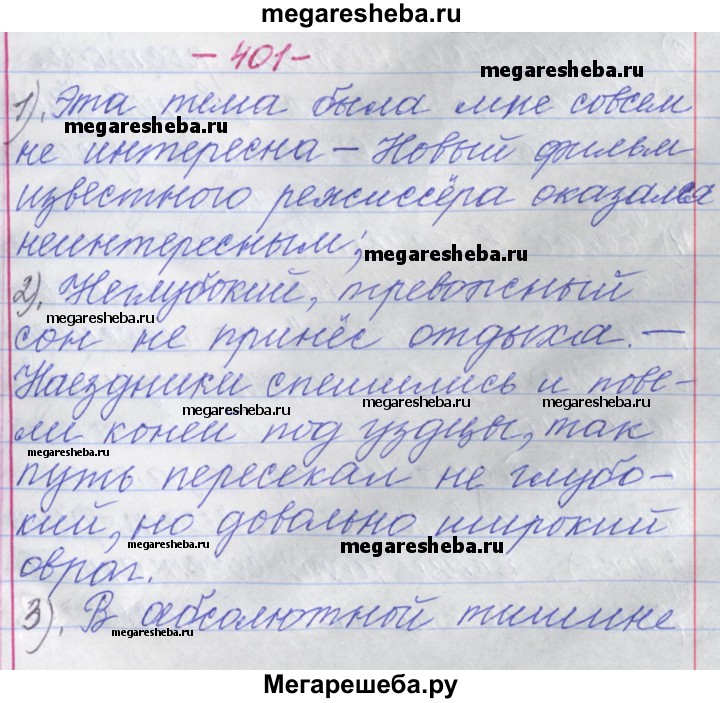 megaresheba.ru
- 401 -
megaresheba.ru
1). Эта тема была мне совсем
megaresheba.ru
не интересна – Новый фильм
известного режиссёра оказался
неинтересным;
megaresheba.ru
2). Неглубокий, тревожный
megaresheba.ru
сон не принёс отдыха. –
megaresheba.ru
Наездники спешились и пове-
megaresheba.ru
megaresheba.ru
ли коней под уздцы, так
путь пересекал не глубо-
кий, но довольно широкий
megaresheba.ru
megaresheba.ru
овраг.
3). В абсолютной тишине
megaresheba.ru
Мегарешеба.ру